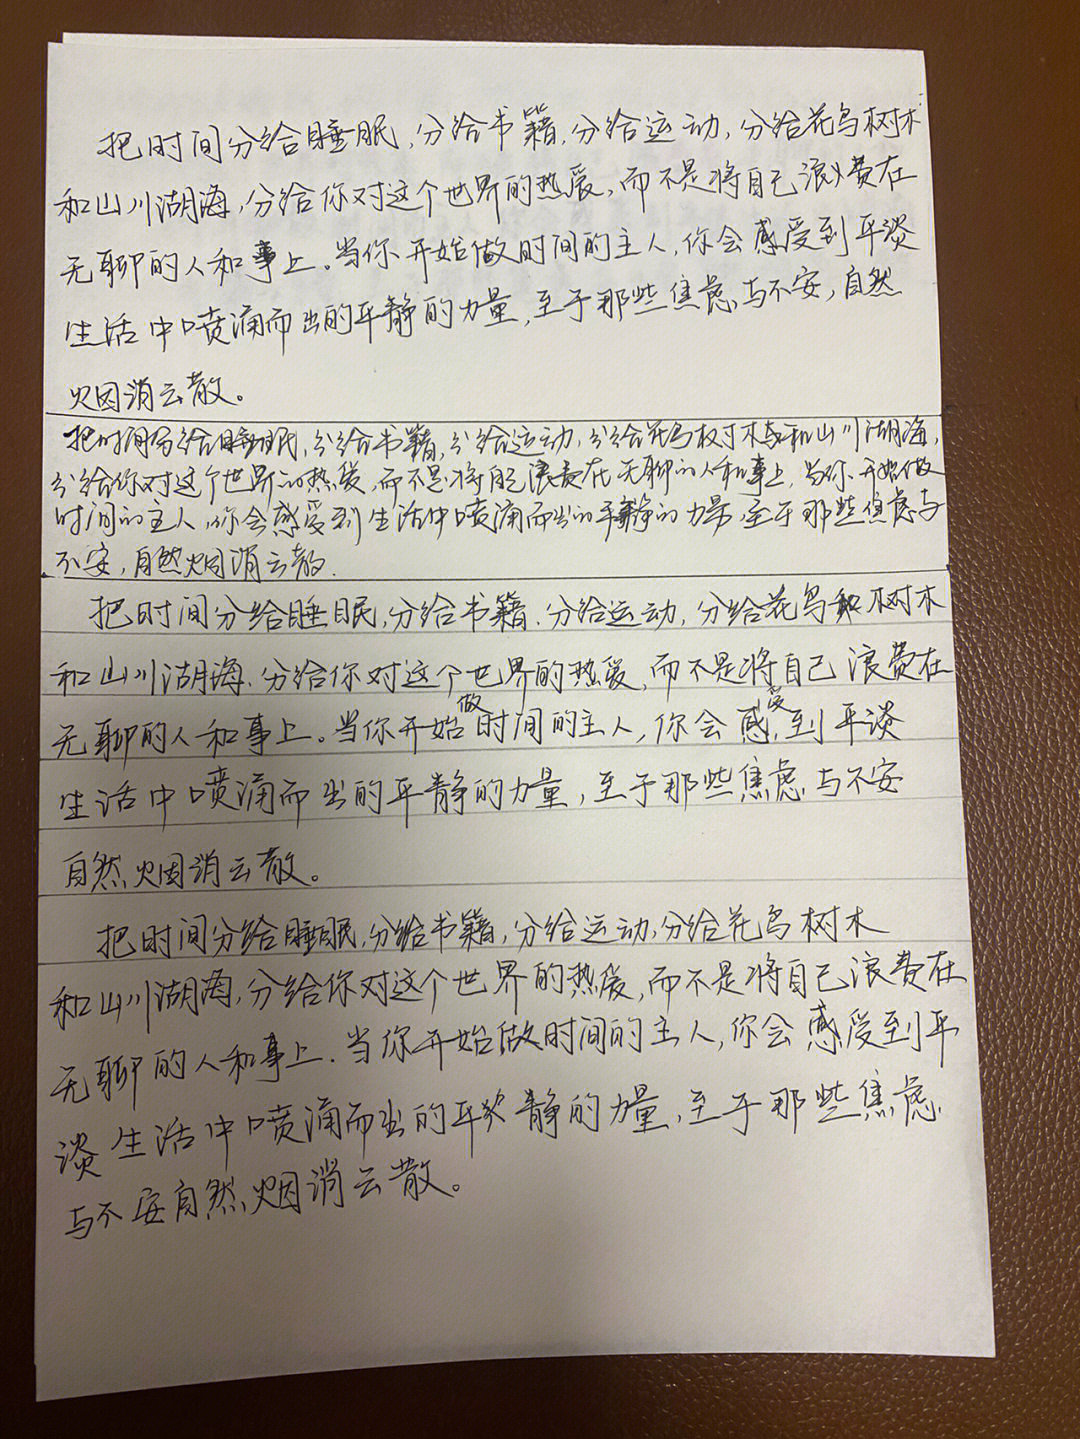 把时间分给睡眠，分给书籍，分给运动，分给花鸟树木
和山川湖海，分给你对这个世界的热爱，而不是将自己浪费在
无聊的人和事上。当你开始做时间的主人，你会感受到平淡
生活中喷涌而出的平静的力量，至于那些焦虑与不安，自然
烟消云散。
把时间分给睡眠，分给书籍，分给运动，分给花鸟树木和山川湖海，
分给你对这个世界的热爱，而不是将自己浪费在无聊的人和事上，当你开始做
时间的主人，你会感受到生活中喷涌而出的平静的力量，至于那些焦虑与
不安，自然烟消云散．
把时间分给睡眠，分给书籍．分给运动，分给花鸟树木
和山川湖海．分给你对这个世界的热爱，而不是将自己浪费在
无聊的人和事上。当你开始做时间的主人，你会感受到平淡
生活中喷涌而出的平静的力量，至于那些焦虑与不安
自然烟消云散。
把时间分给睡眠，分给书籍，分给运动，分给花鸟树木
和山川湖海，分给你对这个世界的热爱，而不是将自己浪费在
无聊的人和事上．当你开始做时间的主人，你会感受到平
淡生活中喷涌而出的平静的力量，至于那些焦虑
与不安自然烟消云散。